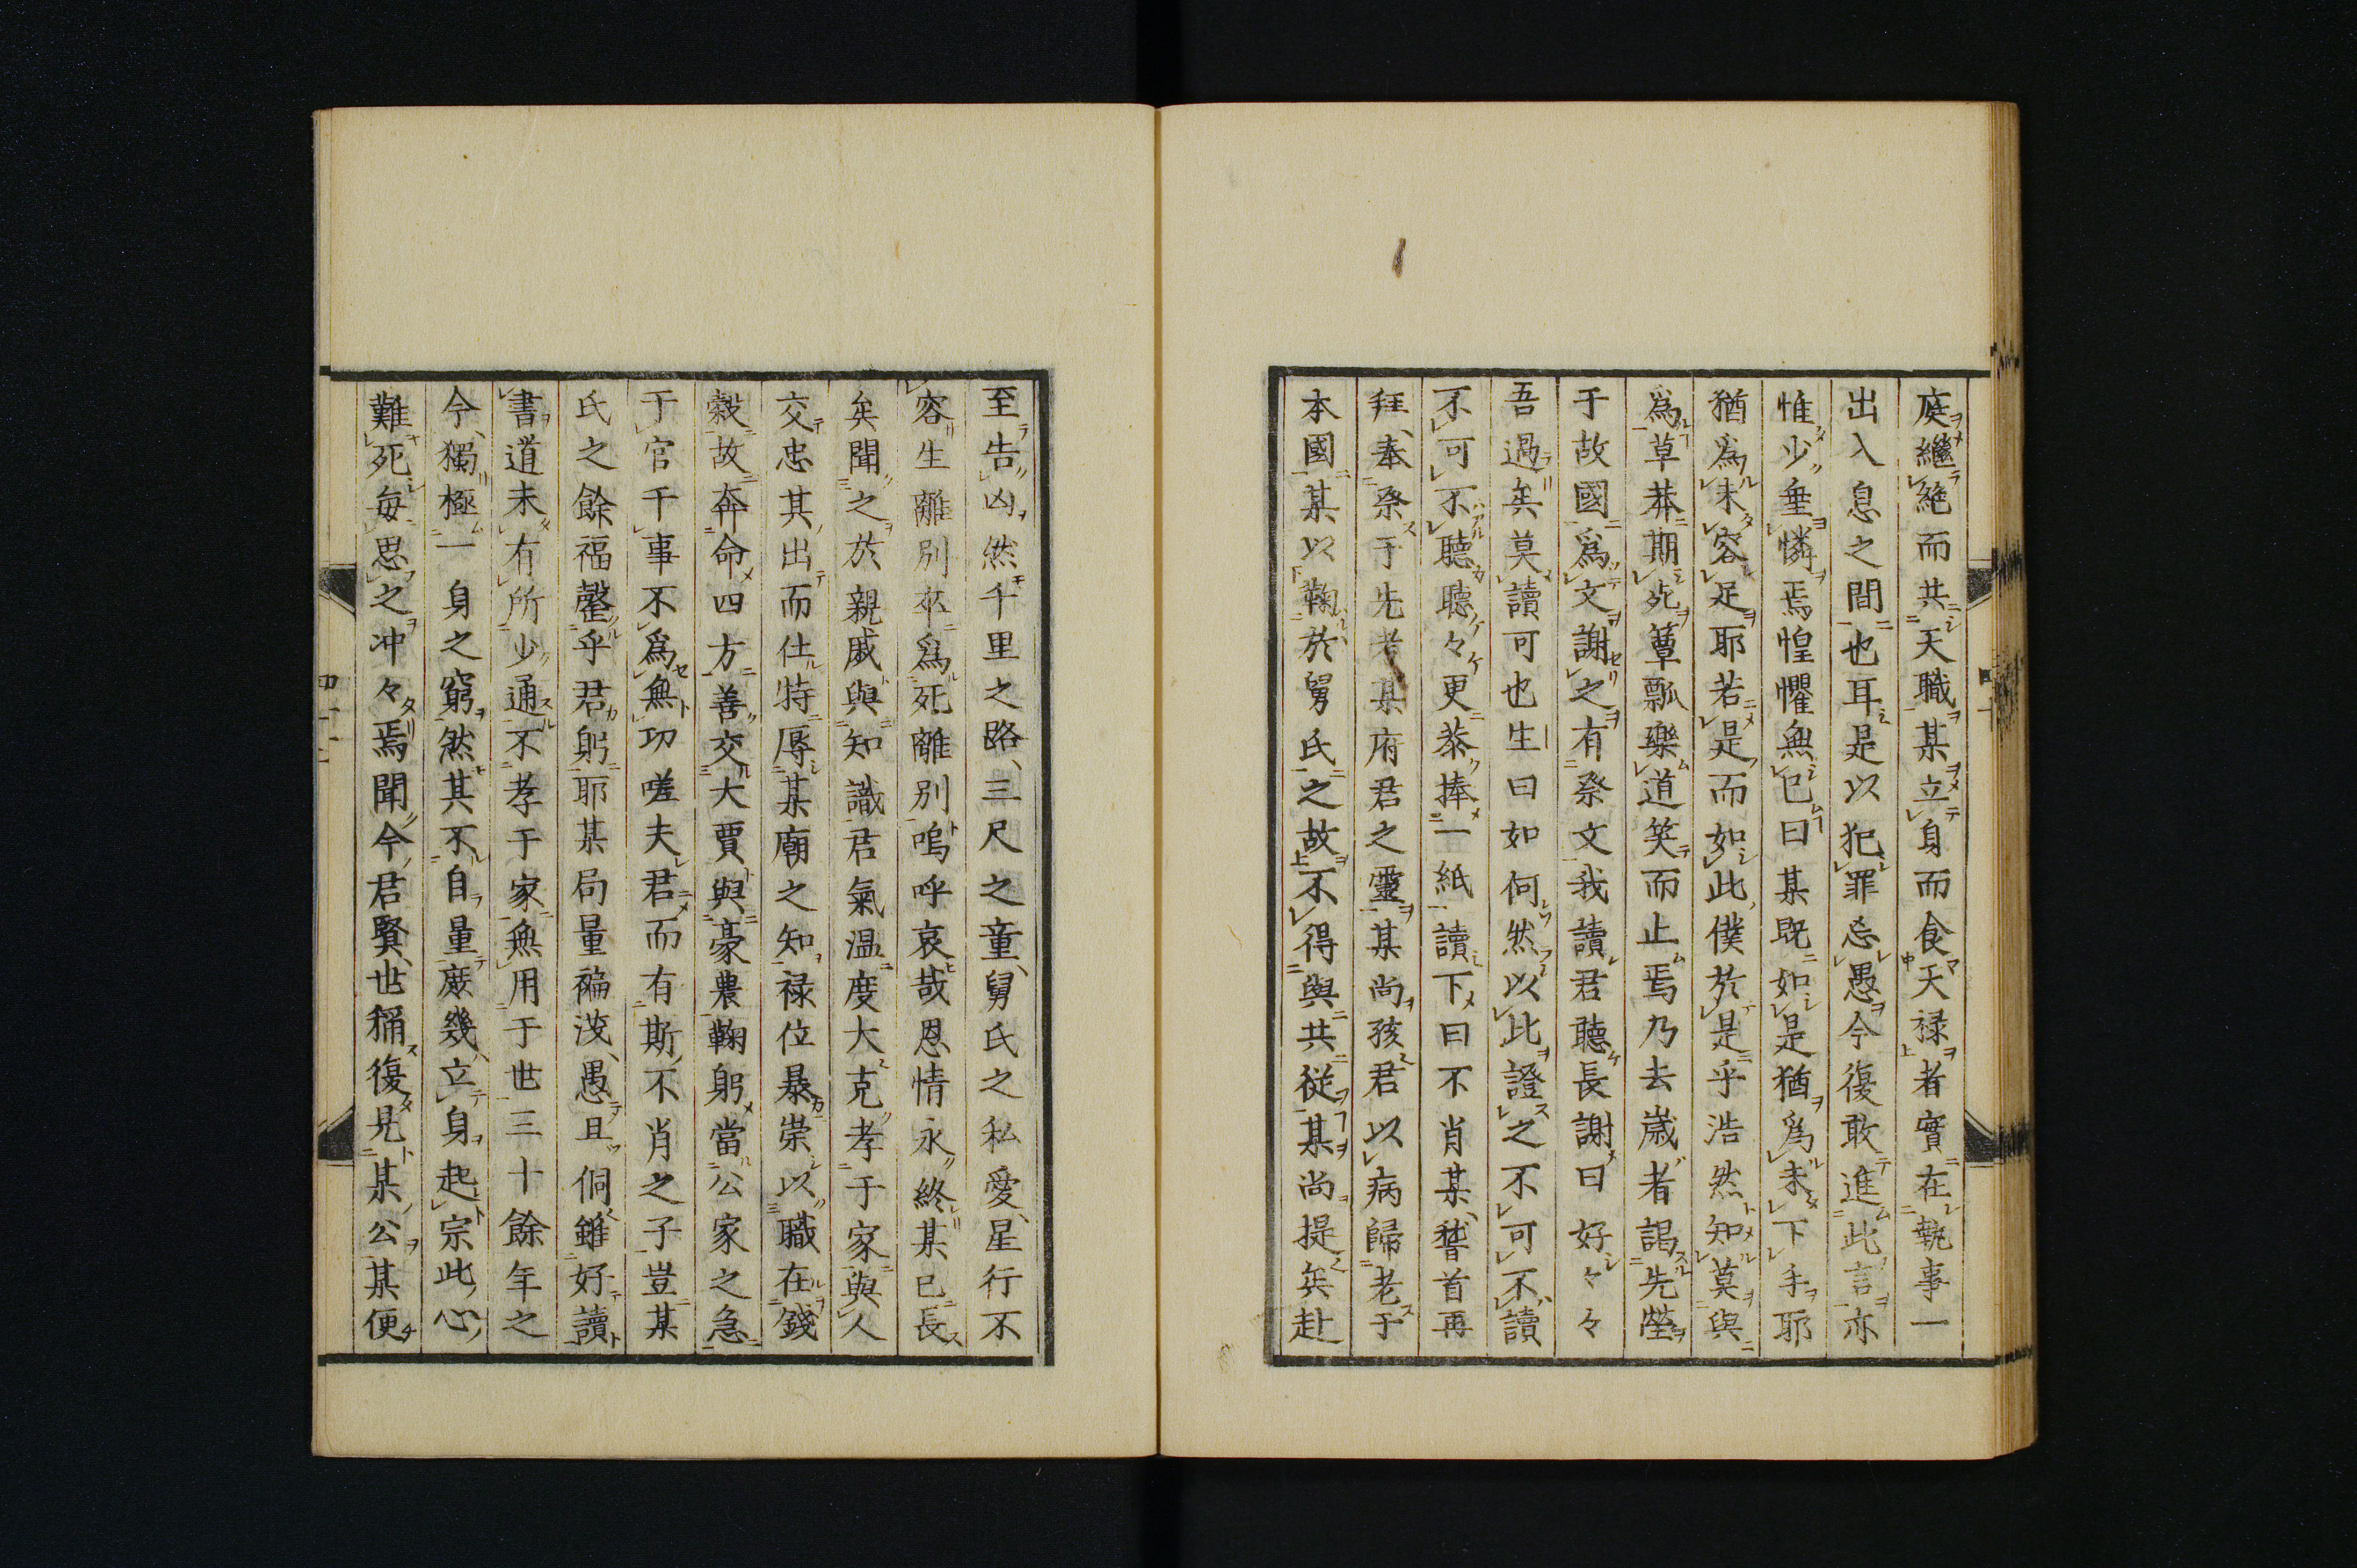 庭繼絶而共天職某立身而食天禄者實在執事一
出入息之間也耳是以犯罪忘愚今復敢進此言亦
惟少垂憐焉惶懼無已曰某既如是猶爲未下手耶
猶爲未容足耶若是而如此僕於是乎浩然知莫與
爲草莽期死簞瓢樂道笑而止焉乃去歳者謁先塋
于故國爲文謝之有祭文我讀君聽長謝曰好々々
吾過矣莫讀可也生曰如何然以此證之不可不讀
不可不聽聽々更恭捧一紙讀下曰不肖某稽首再
拜奉祭于先考某府君之靈某尚孩君以病歸老于
本國某以鞠於舅氏之故不得與共從某尚提矣赴
至告凶然千里之路三尺之童舅氏之私愛星行不
容生離別卒爲死離別嗚呼哀哉恩情永終某已長
矣聞之於親戚與知識君氣温度大克孝于家與人
交忠其出而仕特辱某廟之知禄位暴崇以職在錢
穀故奔命四方善交大賈與豪農鞠躬當公家之急
于官干事不爲無功嗟夫君而有斯不肖之子豈某
氏之餘福罄乎君躬耶某局量褊淺愚且侗雖好讀
書道未有所少通不孝于家無用于世三十餘年之
今獨極一身之窮然其不自量庶幾立身起宗此心
難死毎思之冲々焉聞今君賢世稱復見某公某便